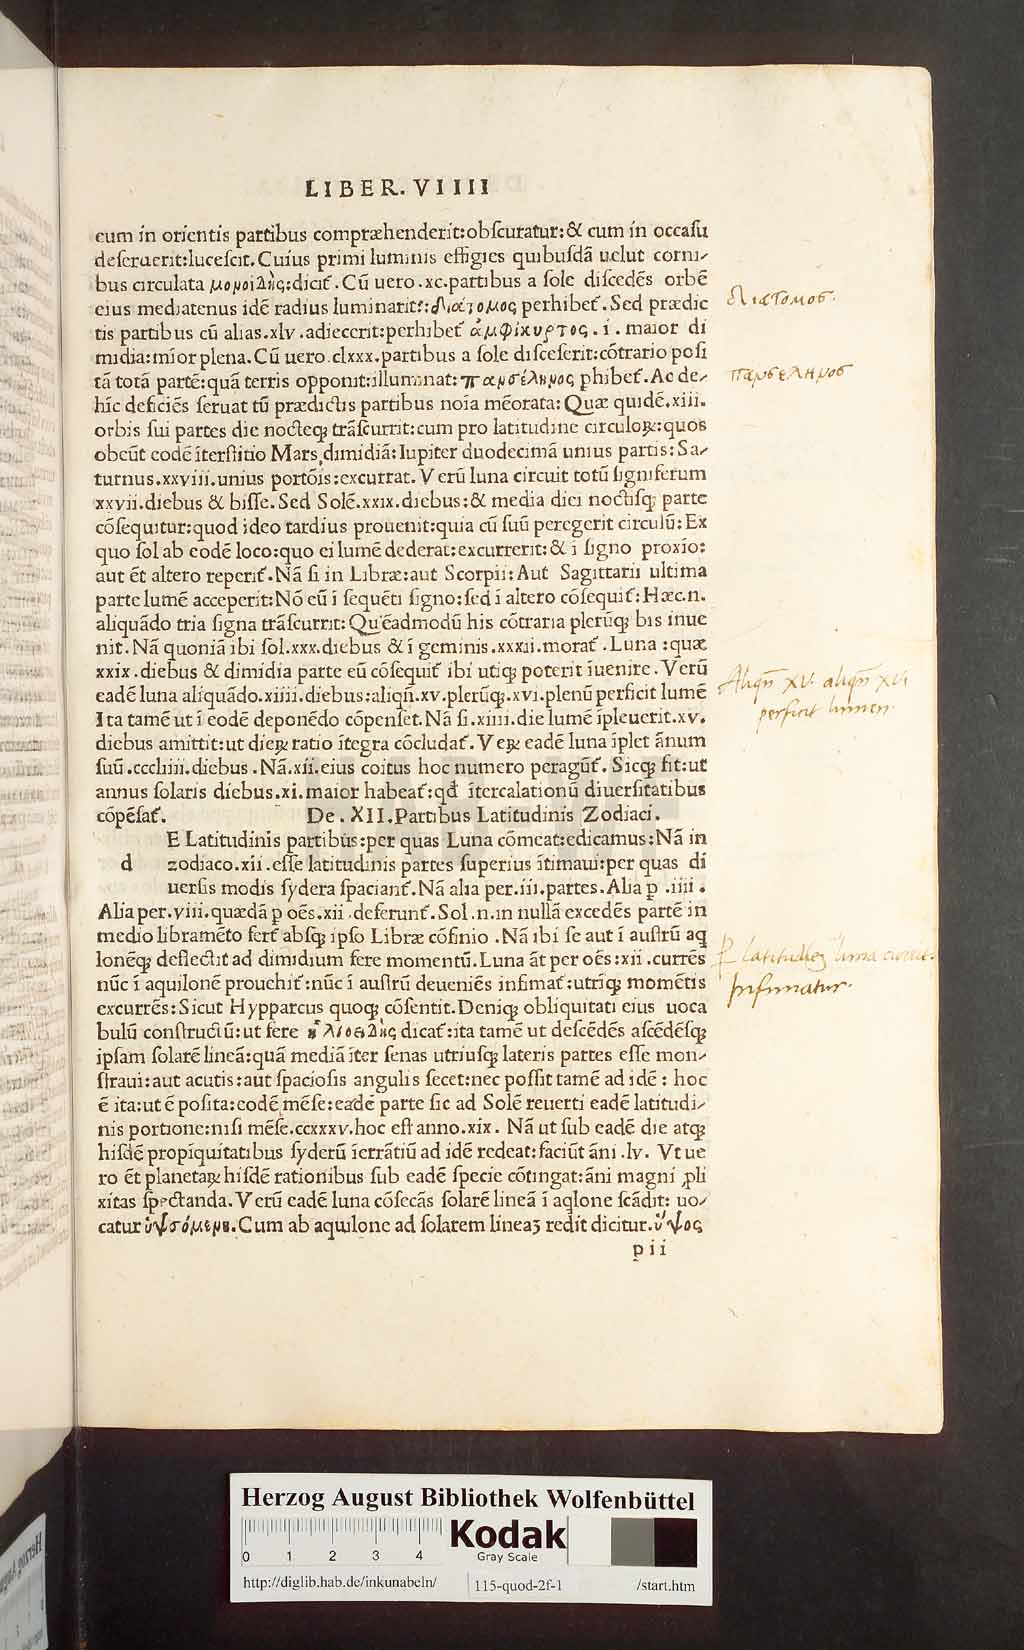 LIBER. VIIII
eum in orientis partibus compræhenderit:obſcuratur:& cum in occaſu
deſeruerit:luceſcit. Cuius primi luminis effigies quibuſdã uelut corni-
bus circulata μονοιδὴς:dicit̃. Cũ uero .xc.partibus a ſole diſcedẽs orbẽ
eius mediatenus idẽ radius luminarit::διάτομος perhibet̃. Sed prædic
tis partibus cũ alias.xlv.adiecerit:perhibet̃ ἀμφίκυρτος. i. maior di
midia:mĩor plena. Cũ uero.clxxx.partibus a ſole diſceſerit:cõtrario poſi
tã totã partẽ:quã terris opponit:illuminat:πανσέληνος phibet̃. Ac de-
hĩc deficiẽs ſeruat tũ prædictis partibus noĩa mẽorata: Quæ quidẽ.xiii.
orbis ſui partes die nocteqꝫ trãſcurrit:cum pro latitudine circuloꝝ:quos
obeũt eodẽ ĩterſtitio Mars,dimidiã:Iupiter duodecimã unius partis: Sa-
turnus.xxviii.unius portõis:excurrat. Verũ luna circuit totũ ſigniferum
xxvii.diebus & biſſe. Sed Solẽ.xxix.diebus:& media diei noctiſqꝫ parte
cõſequitur:quod ideo tardius prouenit:quia cũ ſuũ peregerit circulũ: Ex
quo ſol ab eodẽ loco:quo ei lumẽ dederat:excurrerit:& ĩ ſigno proxĩo:
aut ẽt altero reperit̃. Nã ſi in Libræ:aut Scorpii: Aut Sagittarii ultima
parte lumẽ acceperit: Nõ eũ ĩ ſequẽti ſigno:ſed ĩ altero cõſequit̃: Hæc.n.
aliquãdo tria ſigna trãſcurrit: Quẽadmodũ his cõtraria plerũqꝫ bis inue
nit. Nã quoniã ibi ſol.xxx.diebus & ĩ geminis.xxxii.morat̃. Luna :quæ
xxix.diebus & dimidia parte eũ cõſequit̃ ibi utiqꝫ poterit ĩuenire. Verũ
eadẽ luna aliquãdo.xiiii.diebus:aliqñ.xv.plerũqꝫ.xvi.plenũ perficit lumẽ
Ita tamẽ ut ĩ eodẽ deponẽdo cõpenſet. Nã ſi.xiiii.die lumẽ ĩpleuerit.xv.
diebus amittit:ut dieꝝ ratio ĩtegra cõcludat̃. Veꝝ eadẽ luna ĩplet ãnum
ſuũ.cccliiii.diebus. Nã.xii.eius coitus hoc numero peragũt̃. Sicqꝫ fit:ut
annus ſolaris diebus.xi.maior habeat̃:qđ ĩtercalationũ diuerſitatibus
cõpẽſat̃. De .XII.Partibus Latitudinis Zodiaci.
E Latitudinis partibus:per quas Luna cõmeat:edicamus: Nã in
d zodiaco.xii.eſſe latitudinis partes ſuperius ĩtimaui:per quas di
uerſis modis ſydera ſpaciant̃. Nã alia per.iii.partes. Alia ꝑ .iiii.
Alia per.viii.quædã ꝑ oẽs.xii.deferunt̃. Sol.n.in nullã excedẽs partẽ in
medio libramẽto fert̃ abſqꝫ ipſo Libræ cõfinio. Nã ibi ſe aut ĩ auſtrũ aq
lonẽqꝫ deflectit ad dimidium fere momentũ. Luna ãt per oẽs:xii.currẽs
nũc ĩ aquilonẽ prouehit̃:nũc ĩ auſtrũ deueniẽs infimat̃:utrĩqꝫ momẽtis
excurrẽs: Sicut Hypparcus quoqꝫ cõſentit. Deniqꝫ obliquitati eius uoca
bulũ conſtructũ:ut fere ἡλιοειδὴς dicat̃:ita tamẽ ut deſcẽdẽs aſcẽdẽſqꝫ
ipſam ſolarẽ lineã:quã mediã ĩter ſenas utriuſqꝫ lateris partes eſſe mon-
ſtraui:aut acutis:aut ſpacioſis angulis ſecet:nec poſſit tamẽ ad idẽ : hoc
ẽ ita:ut ẽ poſita:eodẽ mẽſe:eadẽ parte ſic ad Solẽ reuerti eadẽ latitudi-
nis portione:niſi mẽſe.ccxxxv.hoc eſt anno.xix. Nã ut ſub eadẽ die atqꝫ
hiſdẽ propĩquitatibus ſyderũ ĩerrãtiũ ad idẽ redeat:faciũt ãni.lv. Vt ue
ro ẽt planetaꝝ hiſdẽ rationibus ſub eadẽ ſpecie cõtingat:ãni magni ꝓli
xitas ſpectanda. Verũ eadẽ luna cõſecãs ſolarẽ lineã ĩ aqlone ſcãdit: uo-
catur ὑψουμένη. Cum ab aquilone ad ſolarem lineaꝫ redit dicitur. ὕψος
pii
διατομος.
πανσεληνος
Aliqñ XV. aliqñ XVI
perficit lumen.
Infimatur.
Herzog August Bibliothek Wolfenbüttel
Kodak
0 1 2 3 4
Gray Scale
http://diglib.hab.de/inkunabeln/ 115-quod-2f-1 /start.htm